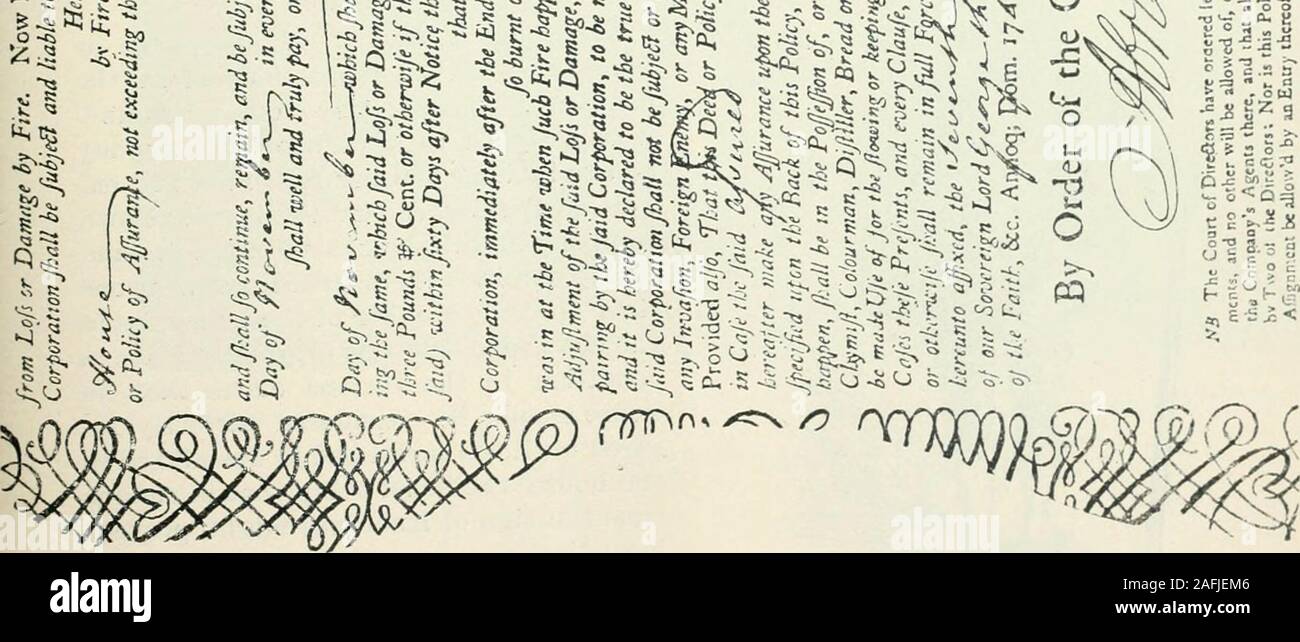 from Loſs or Damage by Fire. Now
Corporation ſhall be ſubject and liable
He
House by Fire
or Policy of Aſſurance, not exceeding th
and ſhall ſo continue, remain, and be ſubj
Day of November in ever
ſhall well and truly pay, or
Day of November which ſha
ing the ſame, which ſaid Loſs or Damag
three Pounds Cent. or otherwiſe if th
ſaid) within ſixty Days after Notice, th
that
Corporation, immediately after the End
ſo burnt
was in at the Time when ſuch Fire happ
Adjuſtment of the ſaid Loſs or Damage,
pairing by the ſaid Corporation, to be
and it is hereby declared to be the true
ſaid Corporation ſhall not be ſubject or
any Invaſion, Foreign Enemy, or any M
Provided alſo, That this Deed or Policy
in Caſe the ſaid Aſſured
hereafter make any Aſſurance upon the
ſpecified upon the Back of this Policy,
happen, ſhall be in the Poſſeſſion of, or
Chymiſt, Colourman, Diſtiller, Bread or
be made Uſe of for the ſtowing or keeping
Caſes theſe Preſents, and every Clauſe,
or otherwiſe ſhall remain in full Forc
hereunto affixed, the Seventh
of our Sovereign Lord George th
of the Faith, &c. Annoq; Dom. 174
By Order of the C
NB The Court of Directors have ordered
ments, and no other will be allowed of,
the Company's Agents there, and that al
by Two of the Directors: Nor is this Pol
Aſſignment be allow'd by an Entry thereof
alamy
Image ID: 2AFJEM6
www.alamy.com